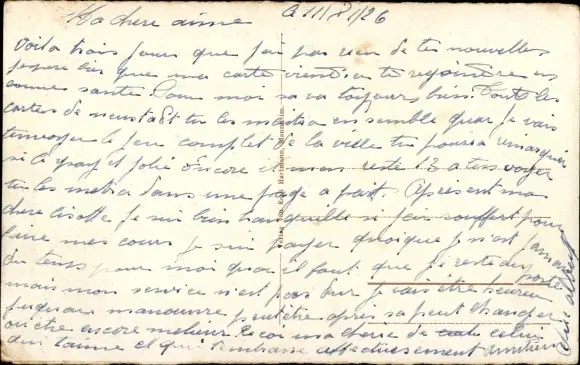 Ma chere aimee
Le 11/8/26
Voila trois jours que j'ai pas reçu de tes nouvelles
j'espere bien que ma carte vient te rejoindre en
bonne santé. Pour moi sa va toujours bien. Tout les
cartes de tu les mettra ensemble quar je vais
t'envoyer le jeu complet de la ville tu poura remarquer
si le joli encore il m'en reste 13 a t'envoyer
tu les mettra dans une page a part. Apresent ma
chere lisette je suis bien tranquille si j'ai souffert pour
faire mes cours je suis payer quoique je n'est jamais
du temps pour moi quar il faut que je reste au poste
mais mon service n'est pas dur je vais être heureux
jusqu'au manoeuvre peut être apres sa peut changer
ou être encore meilleur. Recoi ma cherie de celui
qui t'aime et qui t'embrasse affectueusement
Verlag von Edm. Hartmann, Mannheim.